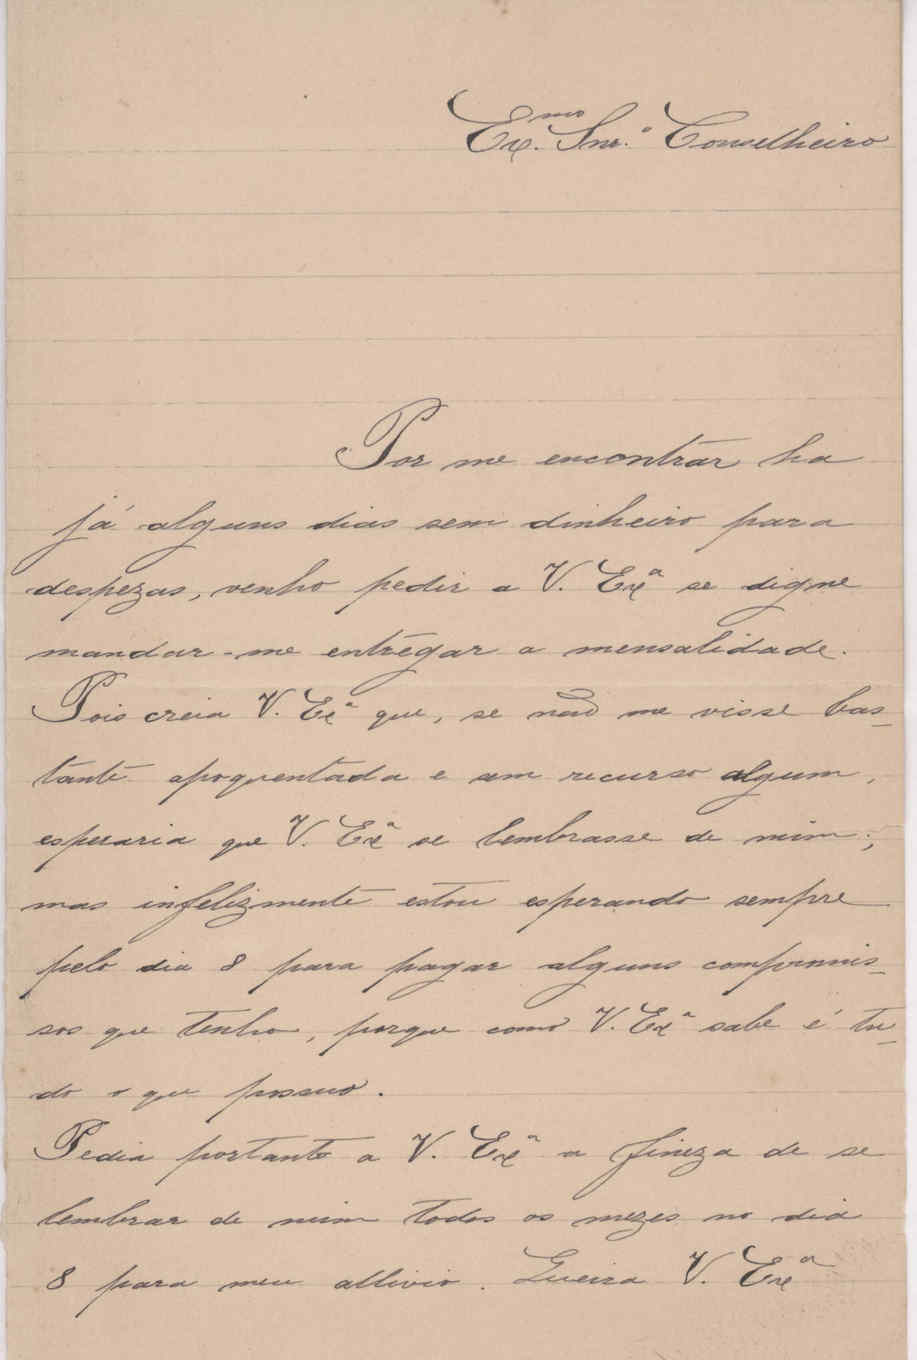 Ex.mo Snr.º Conselheiro
Por me encontrar ha
já alguns dias sem dinheiro para
despezas, venho pedir a V. Exª se digne
mandar-me entregar a mensalidade.
Pois creia V. Exª que, se não me visse bas-
tante apoquentada e sem recurso algum,
esperaria que V. Exª se lembrasse de mim;
mas infelizmente estou esperando sempre
pelo dia 8 para pagar alguns compromis-
sos que tenho, porque como V. Exª sabe é tu-
do o que possuo.
Pedia portanto a V. Exª a fineza de se
lembrar de mim todos os mezes no dia
8 para meu allivio. Queira V. Exª